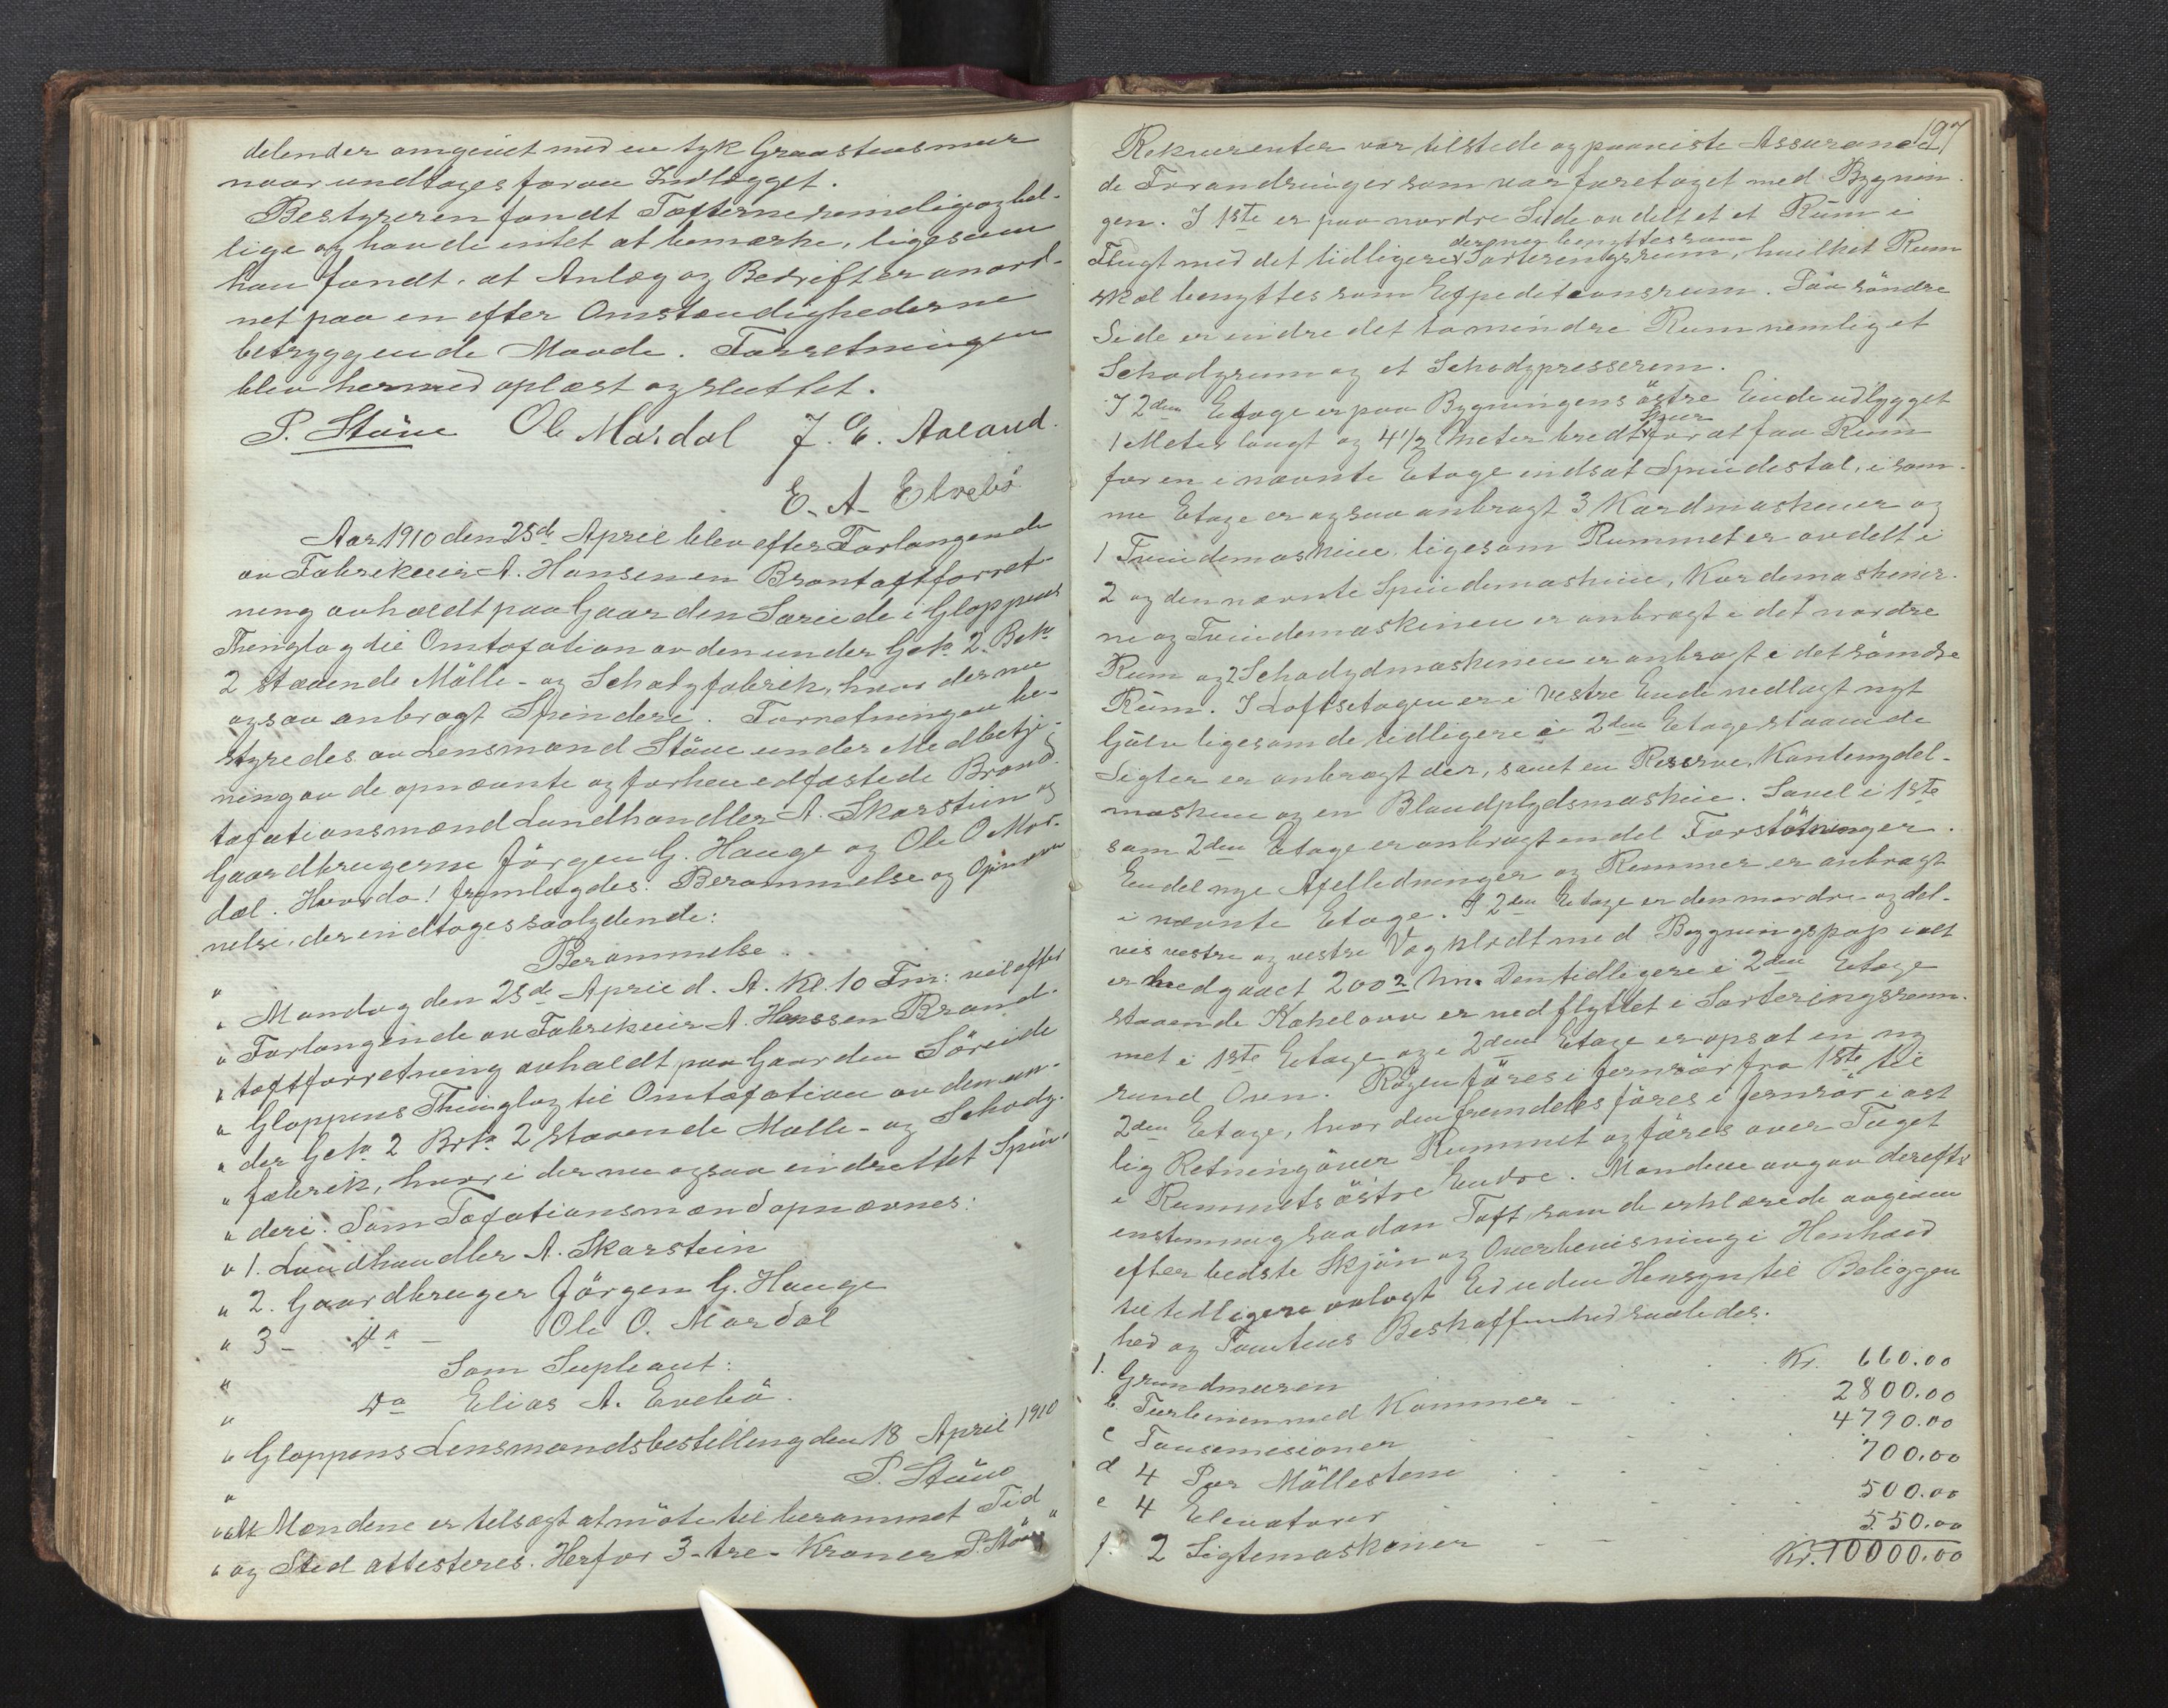 delender omgivet med en tyk Graastensmur
naar undtages foran Indlægget.
Bestyreren fandt Tafterne rimelige og bil-
lige og havde intet at bemærke, ligesom
han fandt, at Anlæg og Bedrift er anord-
net paa en efter Omstændighederne
betryggende Maade. Forretningen
blev hermed oplæst og sluttet.
P. Støve Ole Mardal J. E. Aaland.
E. A. Elvebö
Aar 1910 den 25de April blev efter Forlangende
av Fabrikeier A. Hansen en Brantaftforret-
ning avholdt paa Gaarden Søreide i Gloppens
Thinglag til Omtaxation av den under Gde No 2. Brk No
2 staaende Mölle- og Schodyfabrik, hvor der nu
ogsaa anbragt Spinderi. Forretningen be-
styredes av Lensmand Støve under Medbetje-
ning av de opnævnte og forhen edfæstede Brand-
taxationsmænd Landhandler A. Skarstein og
Gaardbrugerne Jörgen G. Hauge og Ole O Mar-
dal. Hvorda! fremlagdes: Berammelse og Opnævn-
nelse, der indtages saalydende:
" Berammelse.
" Mandag den 25de April d. A. Kl. 10 Fm: vil efter
" Forlangende av Fabrikeier A. Hanssen Brand-
" taftforretning avholdt paa Gaarden Söreide
" Gloppens Thinglag til Omtaxation av den un-
" der Gde No 2 Brk No 2 staaende Mølle- og Schody-
" fabrik, hvori der nu ogsaa indrettet Spin-
" deri. Som Taxationsmænd opnævnes:
" 1. Landhandler A. Skarstein
" 2. Gaardbruger Jörgen G. Hauge
" 3 - Do - Ole O. Mardal
" Som Supleant:
" Do Elias A. Evebö.
" Gloppens Lensmandsbestilling den 18 April 1910
" P. Støve
" At Mændene er tilsagt at möte til berammet Tid
" og Sted attesteres. Herfor 3-tre- Kroner. P. Støve "
197
Rekvirenten var tilstede og paaviste Assurance
de Forandringer som var foretaget med Bygnin-
gen. I 1ste er paa nordre Side avdelt et et Rum i
der nu benyttes som
Flugt med det tidligere Sorteringsrum, hvilket Rum
skal benyttes som Expeditionsrum. Paa söndre
Side er indredet to mindre Rum nemlig et
Schodyrum og et Schodypresserum.
I 2den Etage er paa Bygningens östre Ende udbygget
Skur
1 Meter langt og 4 1/2 Meter bredt for at faa Rum
for en i nævnte Etage indsat Spindestol, i sam-
me Etage er ogsaa anbragt 3 Kardmaskiner og
1 Tvindemaskine, ligesom Rummet er avdelt i
2 og den nævnte Spindemaskine, Kardemaskiner-
ne og Tvindemaskinen er anbragt i det nordre
Rum og 2 Schodydmaskinen er anbragt i det söndre
Rum. I Loftsetagen er i vestre Ende nedlagt nyt
Gulv ligesom de tidligere i 2den Etage staaende
Sigter er anbragt der, samt en Reserve Kantenydel-
maskine og en Blandplydsmaskine. Savel i 1ste
som 2den Etage er anbragt en del Forstötninger.
En del nye Axelledninger og Remmer er anbragt
i nævnte Etage. I 2den Etage er den nordre og del-
vis vestre og vestre Væg klædt med Bygningspap i alt
er medgaaet 200 2 m. Den tidligere i 2den Etage
staaende Kakelovn er nedflyttet i Sorteringsrum-
met i 1ste Etage og i 2den Etage er opsat en ny
rund Ovn. Rögen föres i Jernrör fra 1ste til
2den Etage, hvor den fremdeles föres i Jernrör i ost
lig Retning över Rummet og föres over Taget
i Rummets östre Ende. Mændene avgav derefter
enstemmig saadan Taft, som de erklærede avgiven
efter bedste Skjön og Overbevisning i Henhold
til tidligere avlagt Ed uden Hensyn til Beliggen
hed og Tomtens Beskaffenhed saaledes.
1. Grundmuren Kr. 660.00
b. Turbinen med Kammer - 2800.00
c Tansmisioner 4790.00
d 4 Par Möllestene 700.00
e 4 Elevatorer 500.00
f. 2 Sigtemaskiner 550.00
Kr. 10000.00